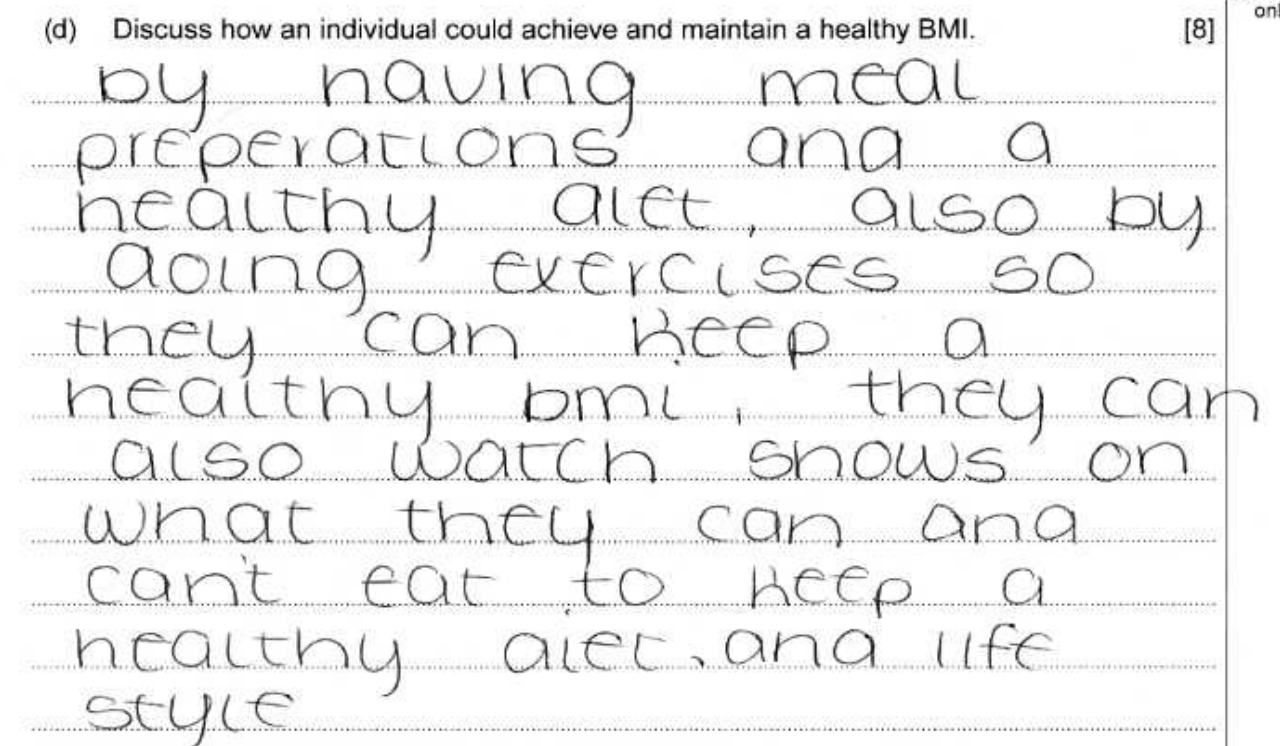 (d) Discuss how an individual could achieve and maintain a healthy BMI. [8]
by having meal
preperations and a
healthy diet, also by
doing exercises so
they can keep a
healthy bmi, they can
also watch shows on
what they can and
can't eat to keep a
healthy diet, and life
style